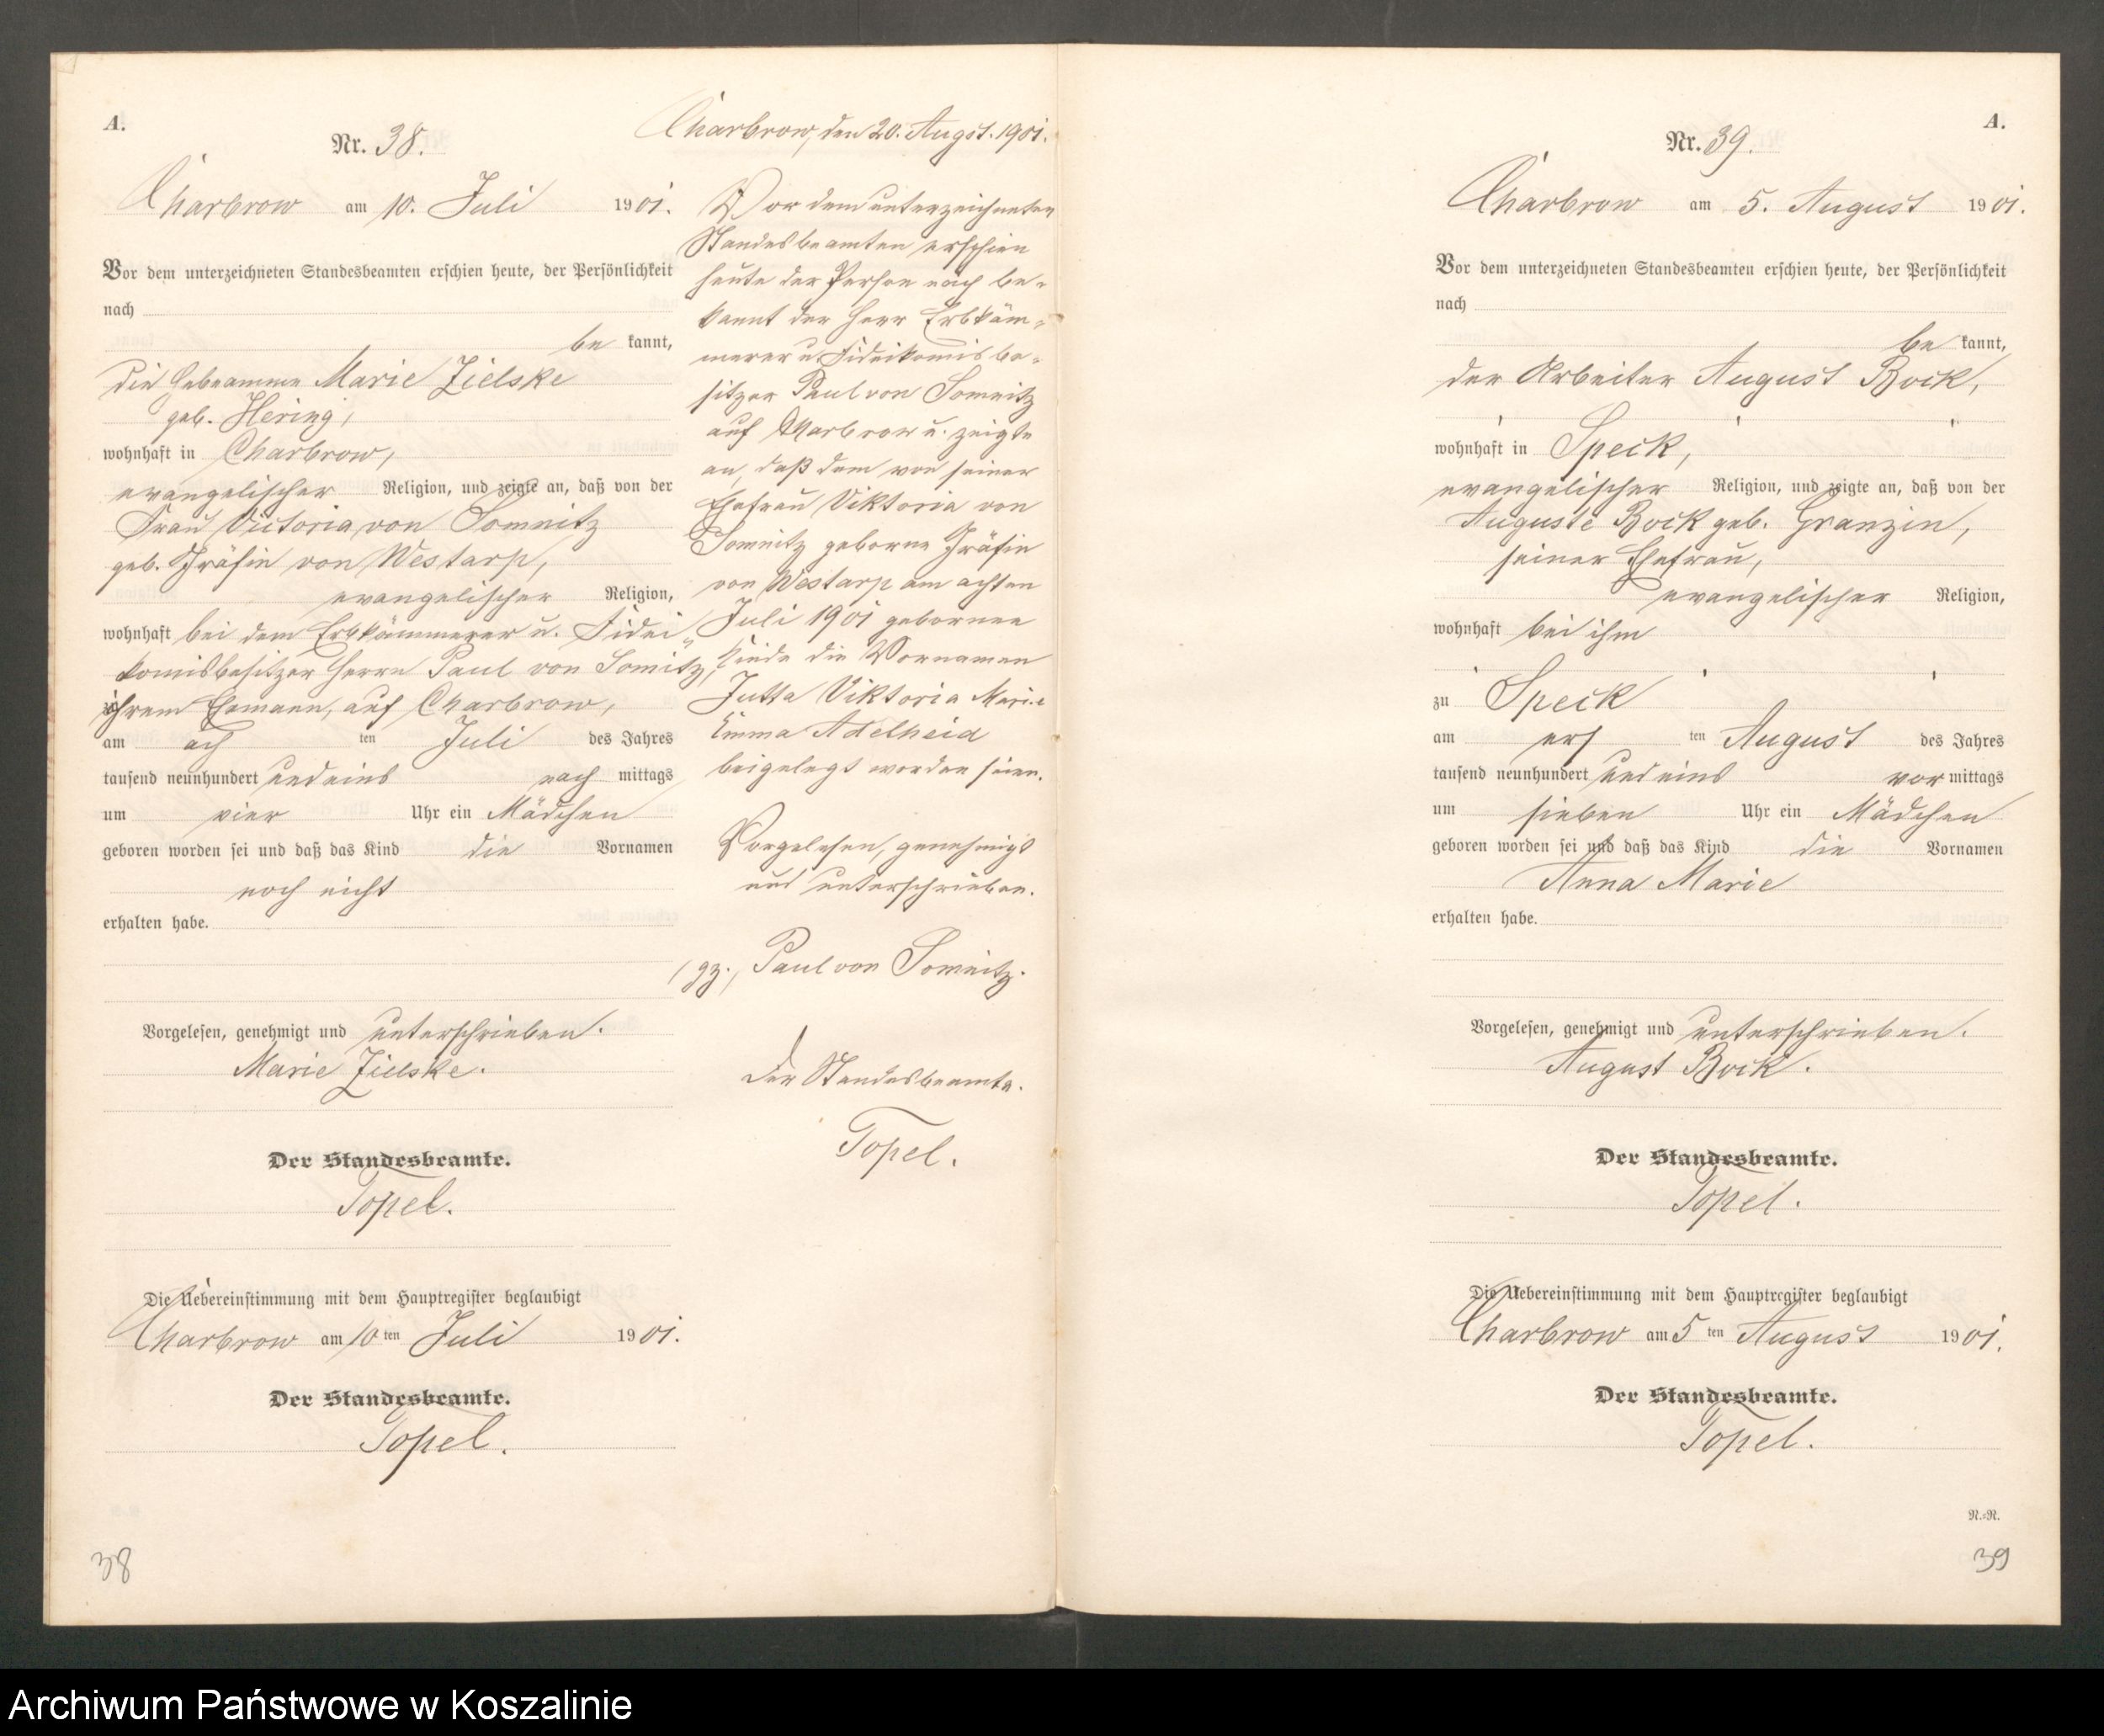 A.
Nr. 38.
Charbrow am 10. Juli 1901.
Vor dem unterzeichneten Standesbeamten erschien heute, der Persönlichkeit
nach
be kannt,
die Hebeamme Marie Zielske
geb. Hering,
wohnhaft in Charbrow,
evangelischer Religion, und zeigte an, daß von der
Frau Victoria von Somnitz
geb. Gräfin von Westarp,
evangelischer Religion,
wohnhaft bei dem Erbkämmerer u. Fidei
komisbesitzer Herrn Paul von Somitz,
ihrem Ehemann, auf Charbrow,
am ach ten Juli des Jahres
tausend neunhundert und eins nach mittags
um vier Uhr ein Mädchen
geboren worden sei und daß das Kind die Vornamen
noch nicht
erhalten habe.
Vorgelesen, genehmigt und unterschrieben.
Marie Zielske.
Der Standesbeamte.
Topel.
Die Uebereinstimmung mit dem Hauptregister beglaubigt
Charbrow am 10 ten Juli 1901.
Der Standesbeamte.
Topel.
38
Charbrow, den 20. Augst. 1901.
Vor dem unterzeichneten
Standesbeamten erschien
heute der Person nach be-
kannt der Herr Erbkäm-
merer u. Fideikomisbe-
sitzer Paul von Somnitz
auf Charbrow u. zeigte
an, daß dem von seiner
Ehefrau Viktoria von
Somnitz geborne Gräfin
von Westarp am achten
Juli 1901 gebornen
Kinde die Vornamen
Jutta Viktoria Marie
Emma Adelheid
beigelegt worden seien.
Vorgelesen, genehmigt
und unterschrieben.
(gz.) Paul von Somnitz.
Der Standesbeamte.
Topel.
A.
Nr. 39.
Charbrow am 5. August 1901.
Vor dem unterzeichneten Standesbeamten erschien heute, der Persönlichkeit
nach
be kannt,
der Arbeiter August Bock,
wohnhaft in Speck,
evangelischer Religion, und zeigte an, daß von der
Auguste Bock geb. Granzin,
seiner Ehefrau,
evangelischer Religion,
wohnhaft bei ihm
zu Speck
am ers ten August des Jahres
tausend neunhundert und eins vor mittags
um sieben Uhr ein Mädchen
geboren worden sei und daß das Kind die Vornamen
Anna Marie
erhalten habe.
Vorgelesen, genehmigt und unterschrieben.
August Bock.
Der Standesbeamte.
Topel.
Die Uebereinstimmung mit dem Hauptregister beglaubigt
Charbrow am 5 ten August 1901.
Der Standesbeamte.
Topel.
N.-N.
39
Archiwum Państwowe w Koszalinie